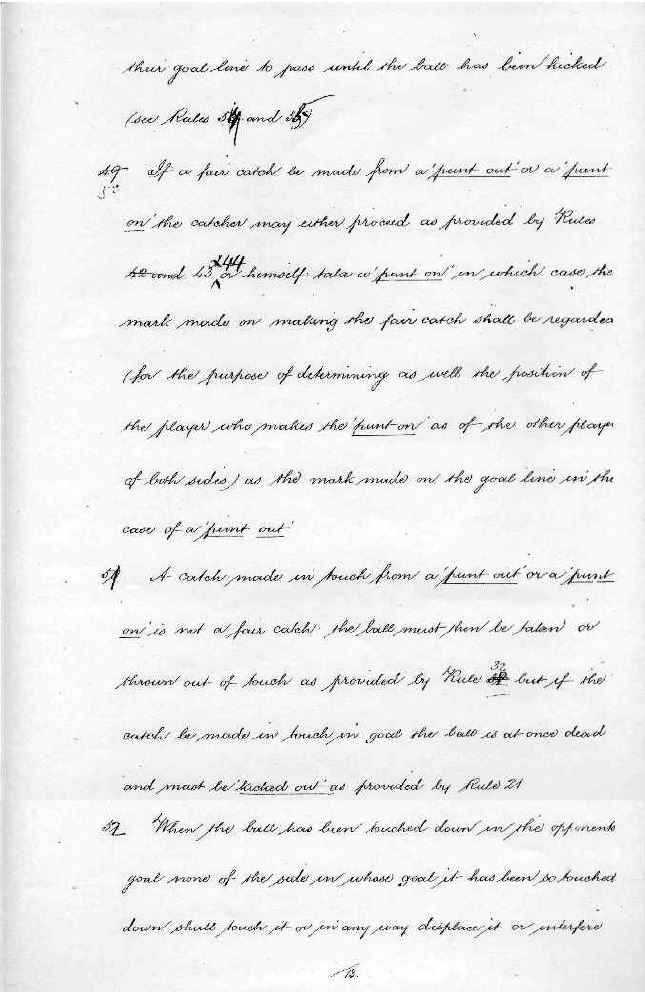 their goal line to pass until the ball has been kicked
(see Rules 54 and 55)
49 If a fair catch be made from a 'punt out' or a 'punt
53
on' the catcher may either proceed as provided by Rules
&44
42 and 43 or himself take a 'punt on' in which case the
mark made on making the fair catch shall be regarded
(for the purpose of determining as well the position of
the player who makes the 'punt on' as of the other player
of both sides) as the mark made on the goal line in the
case of a 'punt out'
A catch made in touch from a 'punt out' or a 'punt
on' is not a fair catch the ball must then be taken or
32
thrown out of touch as provided by Rule but if the
catch be made in touch in goal the ball is at once dead
and must be 'kicked out' as provided by Rule 21
52 When the ball has been touched down in the opponents
goal none of the side in whose goal it has been so touched
down shall touch it or in any way displace it or interfere
13.